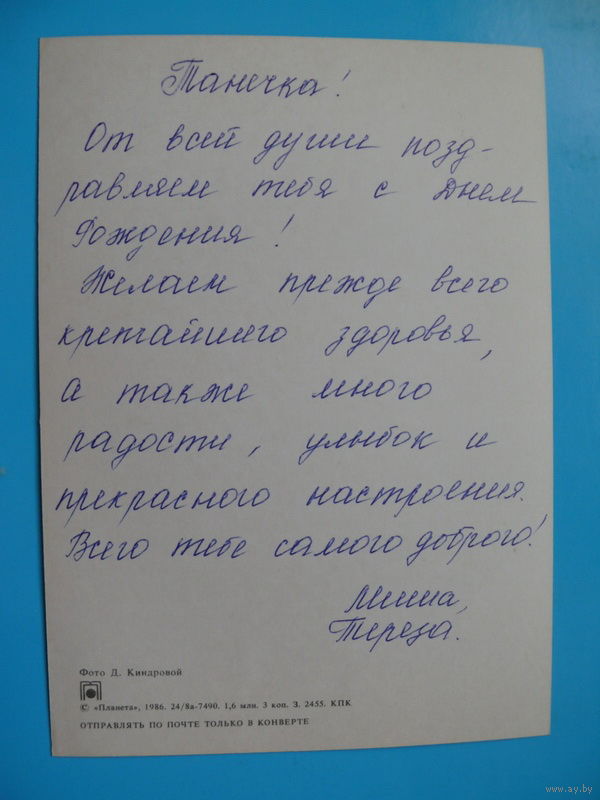 Танечка!
От всей души позд-
равляем тебя с Днем
Рождения!
Желаем прежде всего
крепчайшего здоровья,
а также много
радости, улыбок и
прекрасного настроения.
Всего тебе самого доброго!
Миша,
Тереза.
Фото Д. Киндровой
© «Планета», 1986. 24/8а-7490. 1,6 млн. 3 коп. З. 2455. КПК
ОТПРАВЛЯТЬ ПО ПОЧТЕ ТОЛЬКО В КОНВЕРТЕ
www.ay.by